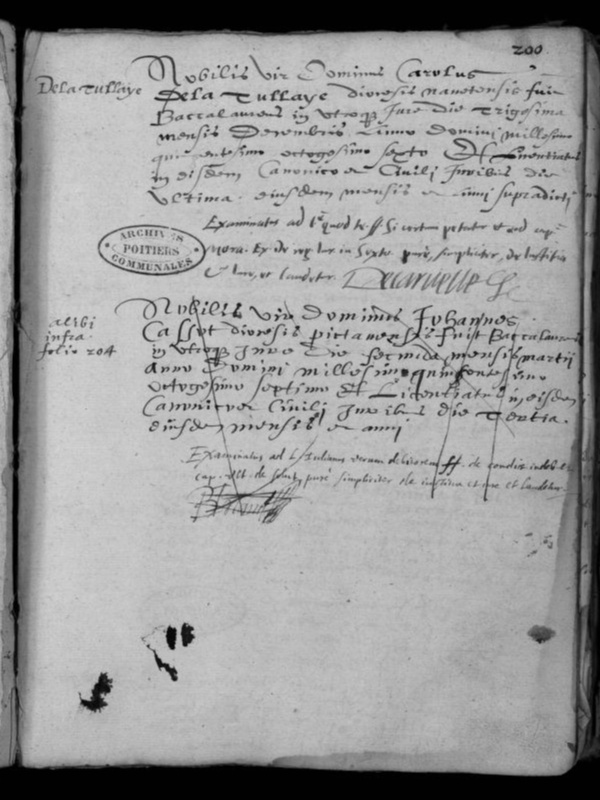 200
De la Tullaye
Nobilis vir Dominus Carolus
De la Tullaye diocesis nanetensis fuit
Baccalaureus in utroq Jure die Trigesima
mensis Decembris Anno domini millesimo
quingentesimo octogesimo sexto Et Licentiatus
in eisdem Canonico et Civili Juribus die
ultima eiusdem mensis et anni supradicti
Examinatus ad l. quod te ff si certum petatur et ad cap.
mora. Ex de reg. iur. in Sexto pure, simpliciter, de Justitia
et iure, et laudetur.
ARCHIVES
POITIERS
COMMUNALES
alibi
infra
folio 204
Nobilis vir dominus Johannes
diocesis pictamensis fuit Baccalaureus
in utroq Jure die secunda mensis martii
Anno domini millesimo quingentesimo
octogesimo septimo Et Licentiatus in eisdem
Canonico et Civili Juribus die Tertia
eiusdem mensis et anni
Examinatus ad l. Julianus verum debitorem ff. de condict. indeb. et
cap. de solut. pure simpliciter de iustitia et iure et laudetur